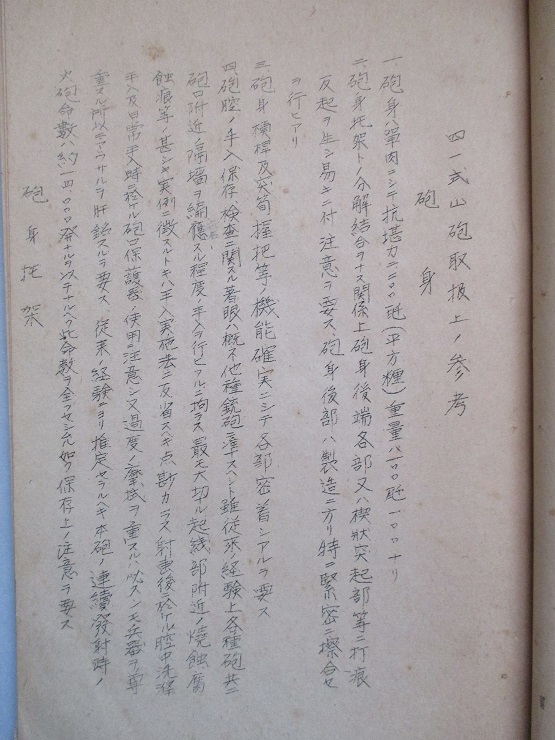 四一式山砲取扱上ノ参考
砲身
一、砲身ハ単肉ニシテ抗堪力二二〇〇瓩(平方糎)重量ハ一〇〇瓩一〇〇ナリ
二、砲身托架トノ分解結合ヲナス関係上砲身後端各部又ハ楔状突起部等ニ打痕
反起ヲ生シ易キニ付注意ヲ要ス、砲身後部ハ製造ニ方リ特ニ緊密ニ擦合セ
ヲ行ヒアリ
三、砲身槓桿及尖筍握把等ノ機能確実ニシテ各部密着シアルヲ要ス
四、砲腔ノ手入保存検査ニ関スル著眼ハ概ネ他種銃砲ニ準スヘシト雖従来ノ経験上各種砲共ニ
砲口附近ノ隔墻ヲ綺麗スル程度ノ手入ヲ行ヒアルニ拘ラス最モ大切ナル起綫部附近ノ焼蝕腐
蝕痕等ノ甚シキ実例ニ徴スルトキハ手入実施法ニ反省スヘキ点尠カラス射撃後ニ於ケル腔中洗滌
手入及日常手入時ニ於ケル砲口保護器ノ使用ニ注意シ又過度ノ磨拭ヲ重スルハ必スシモ兵器ヲ尊
重スル所以ニアラサルヲ肝銘スルヲ要ス 従来ノ経験ニヨリ推定セラルヘキ本砲ノ連続発射時ノ
火砲命数ハ約一四、〇〇〇発ナルヘシ 此命数ヲ全フセシムル如ク保存上ノ注意ヲ要ス
砲身托架